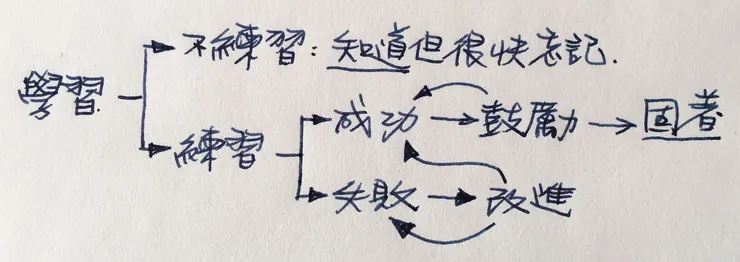 不練習：知道但很快忘記.
學習
成功 鼓勵 固著
練習
失敗 改進